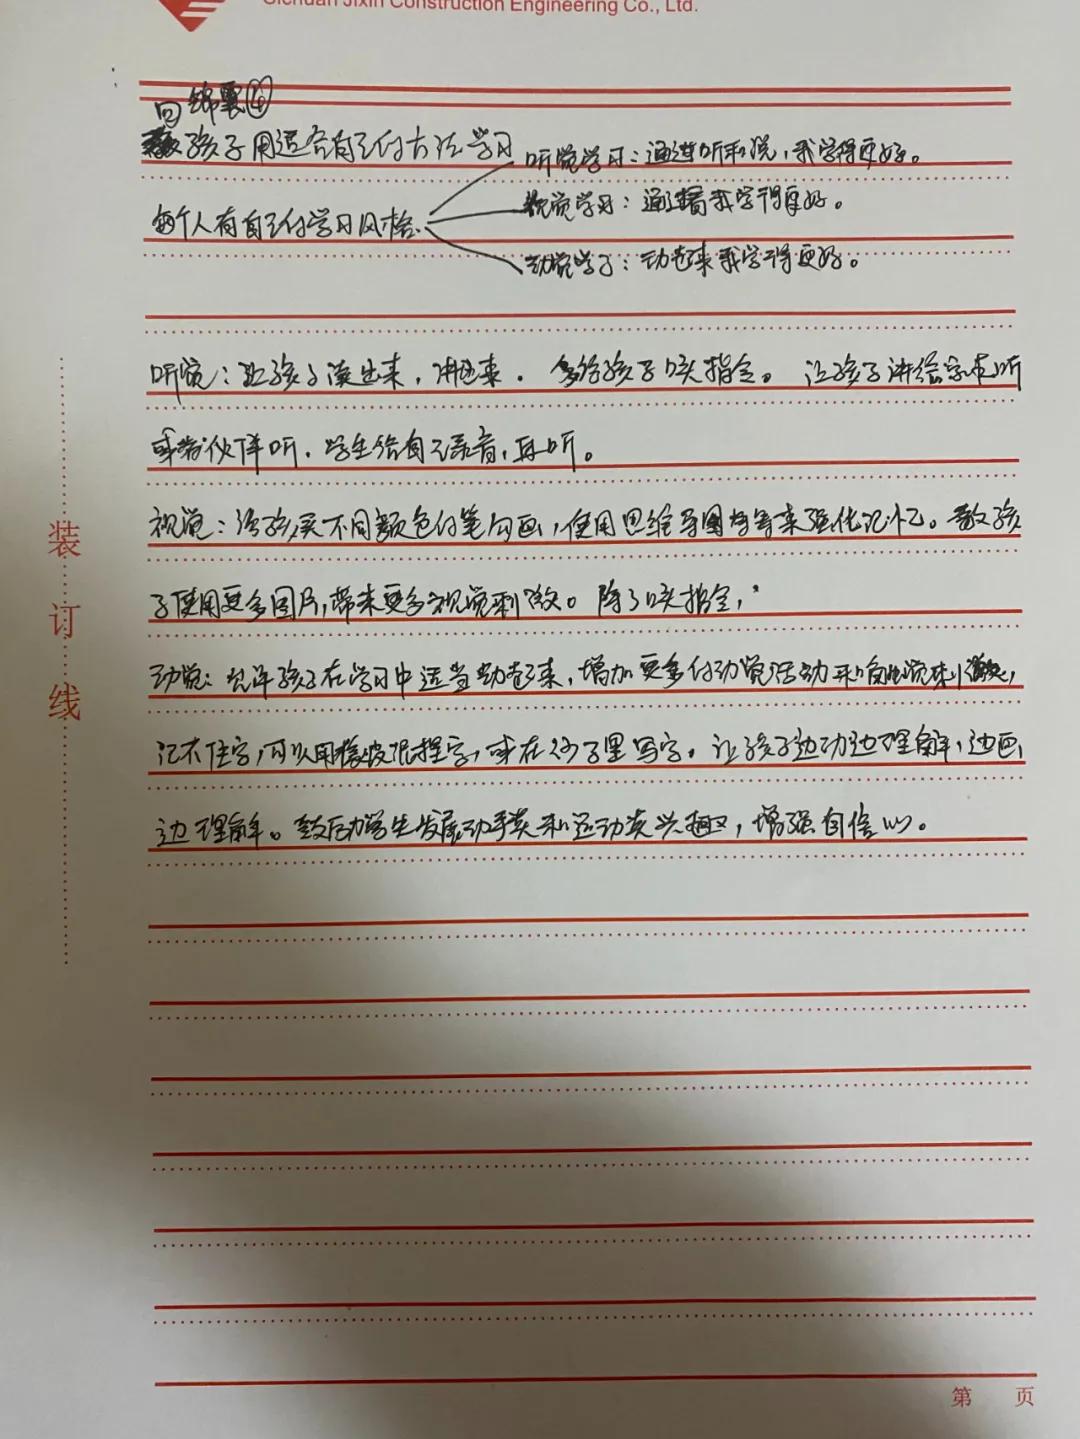 Sichuan Jixin Construction Engineering Co., Ltd.
锦囊④
教孩子用适合自己的方法学习
听觉学习：通过听和说，我学得更好。
视觉学习：通过看我学得更好。
每个人有自己的学习风格.
动觉学习：动起来我学得更好。
听觉：让孩子读出来，讲出来．多给孩子口头指令。让孩子讲给家长听
或者伙伴听．学生给自己录音，再听。
视觉：给孩买不同颜色的笔勾画，使用思维导图等来强化记忆。教孩
子使用更多图片，带来更多视觉刺激。除了口头指令，
动觉：允许孩子在学习中适当动起来，增加更多的动觉活动和触觉刺激，
记不住字，可以用橡皮泥捏字，或在沙子里写字。让孩子边动边理解，边画，
边理解。鼓励学生发展动手类和运动类兴趣，增强自信心。
装
订
线
第 页